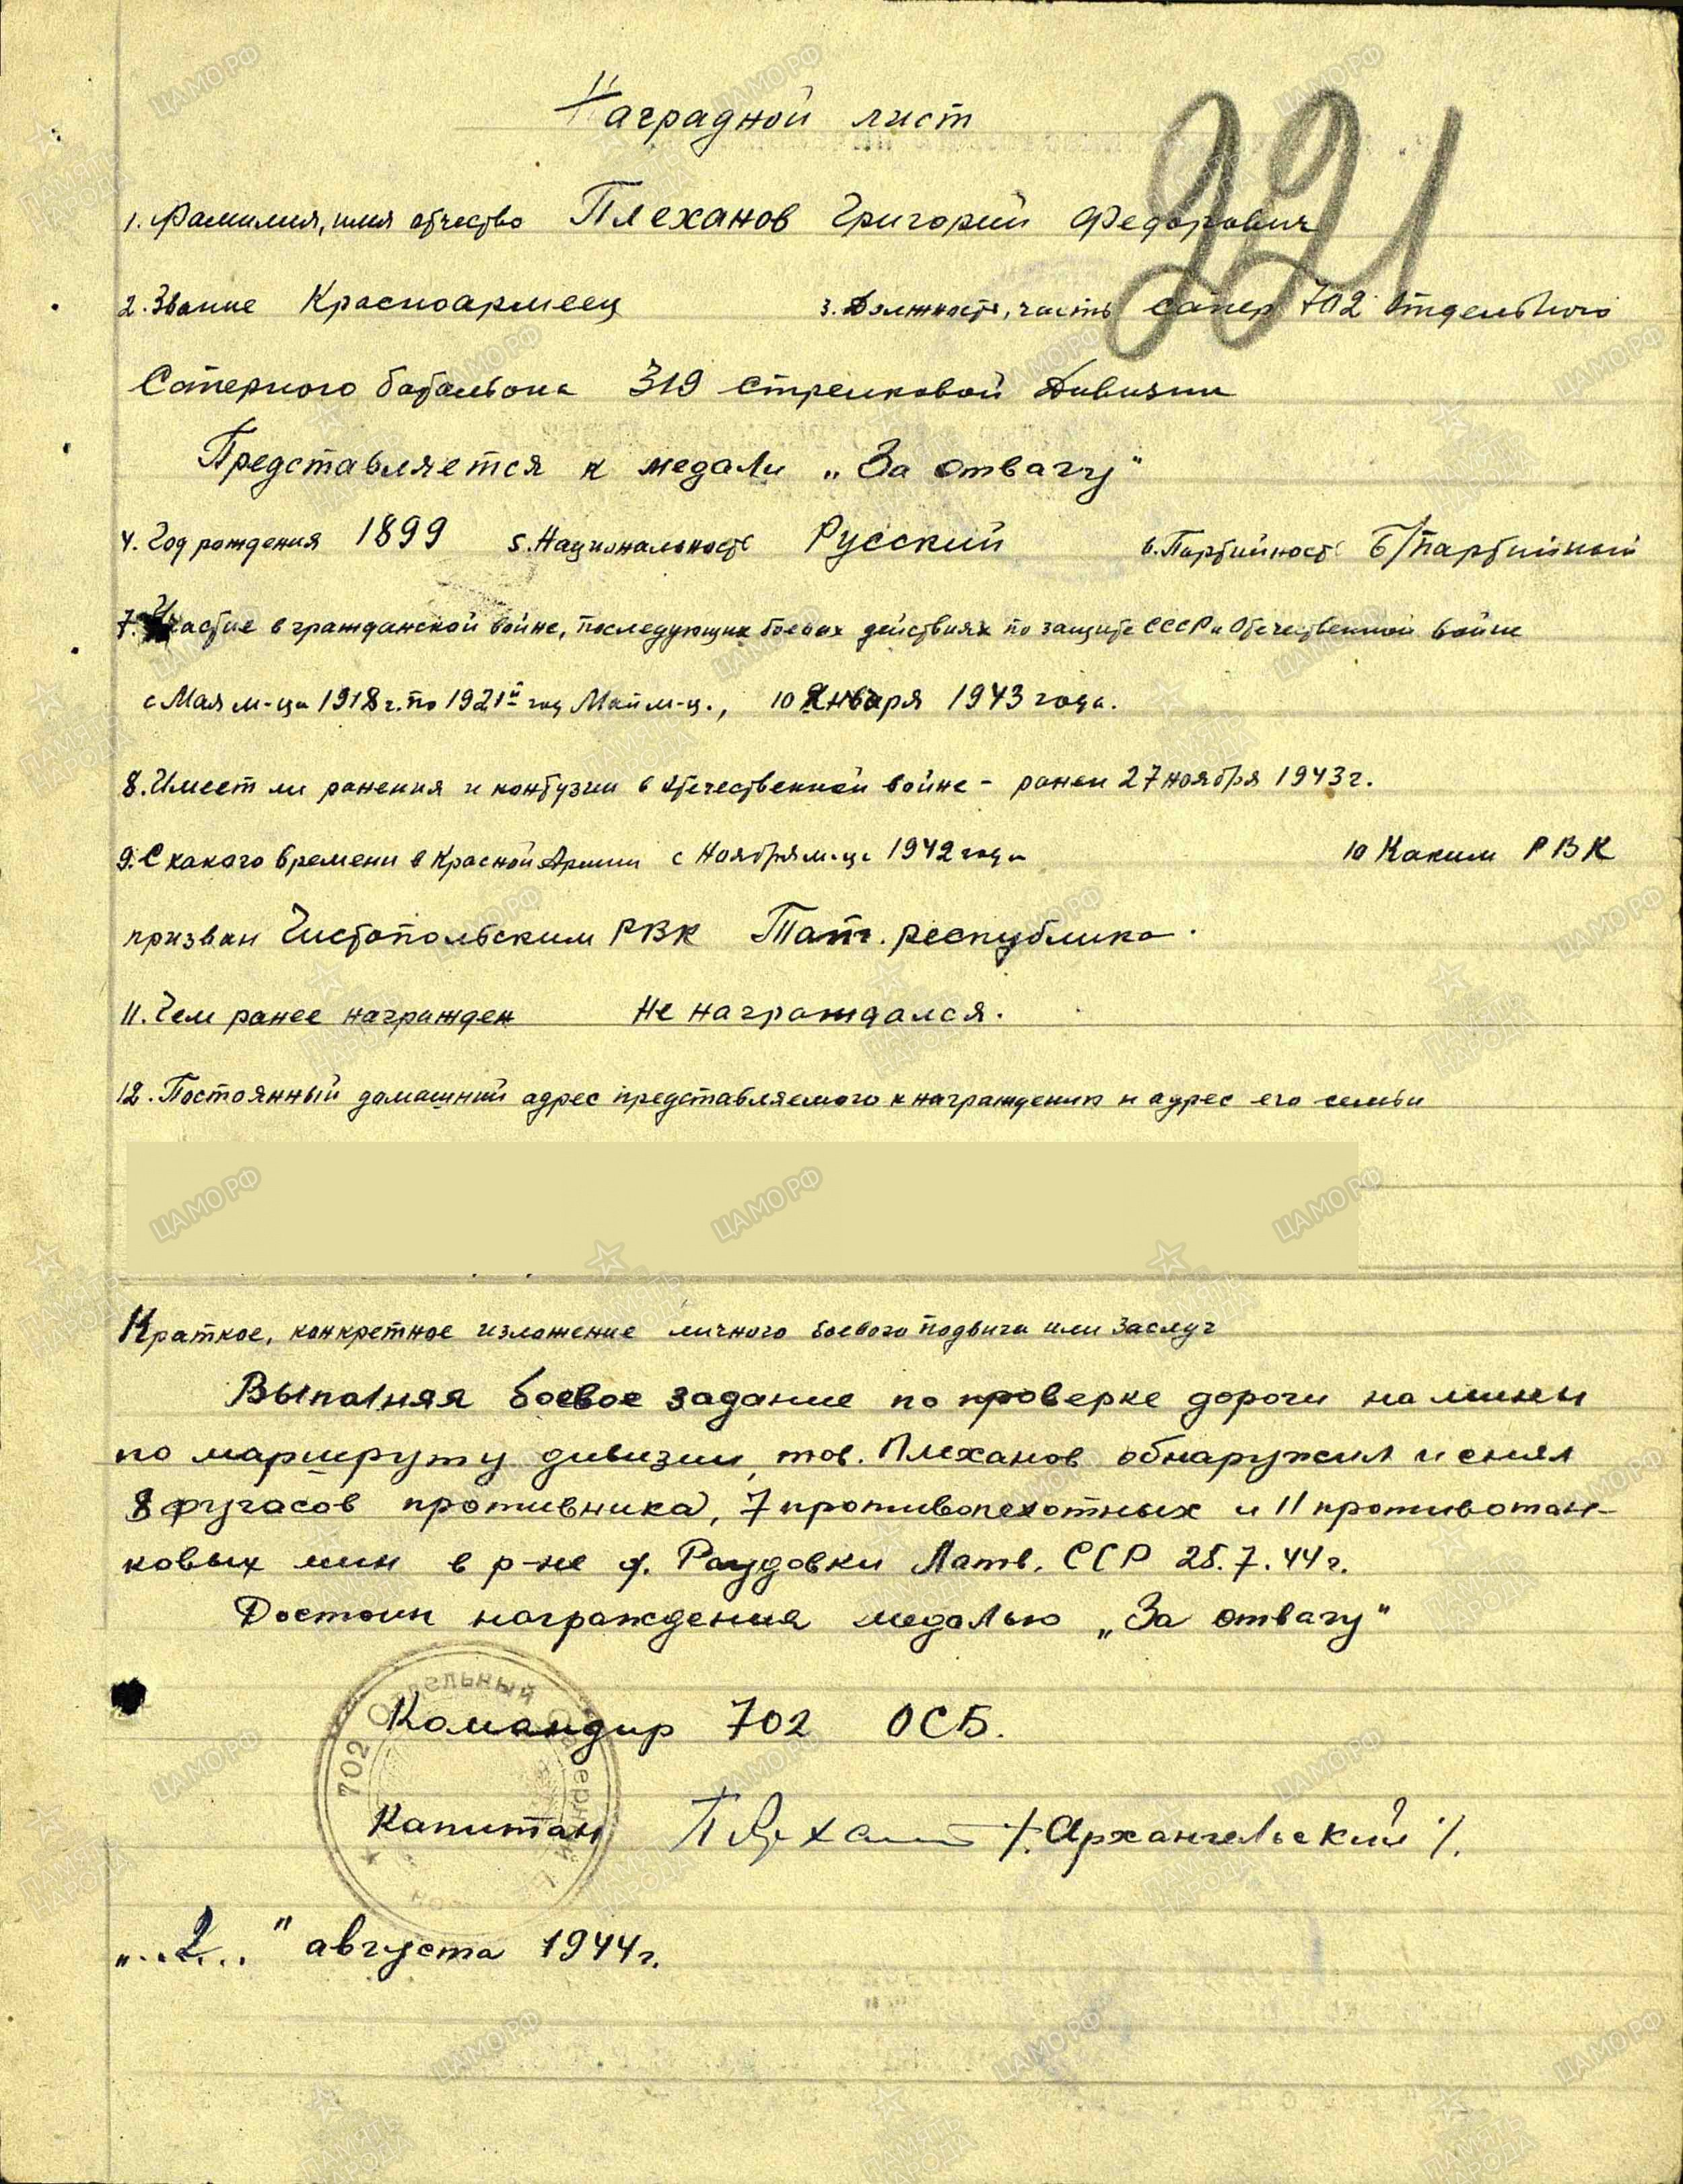 Наградной лист
221
1. Фамилия, имя отчество Плеханов Григорий Федорович
2. Звание Красноармеец 3. Должность, часть сапер 702 Отдельного
Саперного батальона 319 стрелковой Дивизии
Представляется к медали „За отвагу"
4. Год рождения 1899 5. Национальность Русский 6. Партийность Б/партийный
7. Участие в гражданской войне, последующих боевых действиях по защите СССР и Отечественной войне
с Мая м-ца 1918 г. по 1921й год Май м-ц., 10 Января 1943 года.
8. Имеет ли ранения и контузии в отечественной войне - ранен 27 ноября 1943 г.
9. С какого времени в Красной Армии с Ноября м-ца 1942 года 10 Каким РВК
призван Чистопольским РВК Тат. республика.
11. Чем ранее награжден Не награждался.
12. Постоянный домашний адрес представляемого к награждению и адрес его семьи
Краткое, конкретное изложение личного боевого подвига или заслуг
Выполняя боевое задание по проверке дороги на мины
по маршруту дивизии, тов. Плеханов обнаружил и снял
8 фугасов противника, 7 противопехотных и 11 противотан-
ковых мин в р-не д. Раудовки Латв. ССР 28.7.44 г.
Достоин награждения медалью „За отвагу"
702 Отдельный Саперный
Командир 702 ОСБ.
Капитан /. Архангельский /.
„..2.." августа 1944 г.
ЦАМО РФ
ПАМЯТЬ НАРОДА